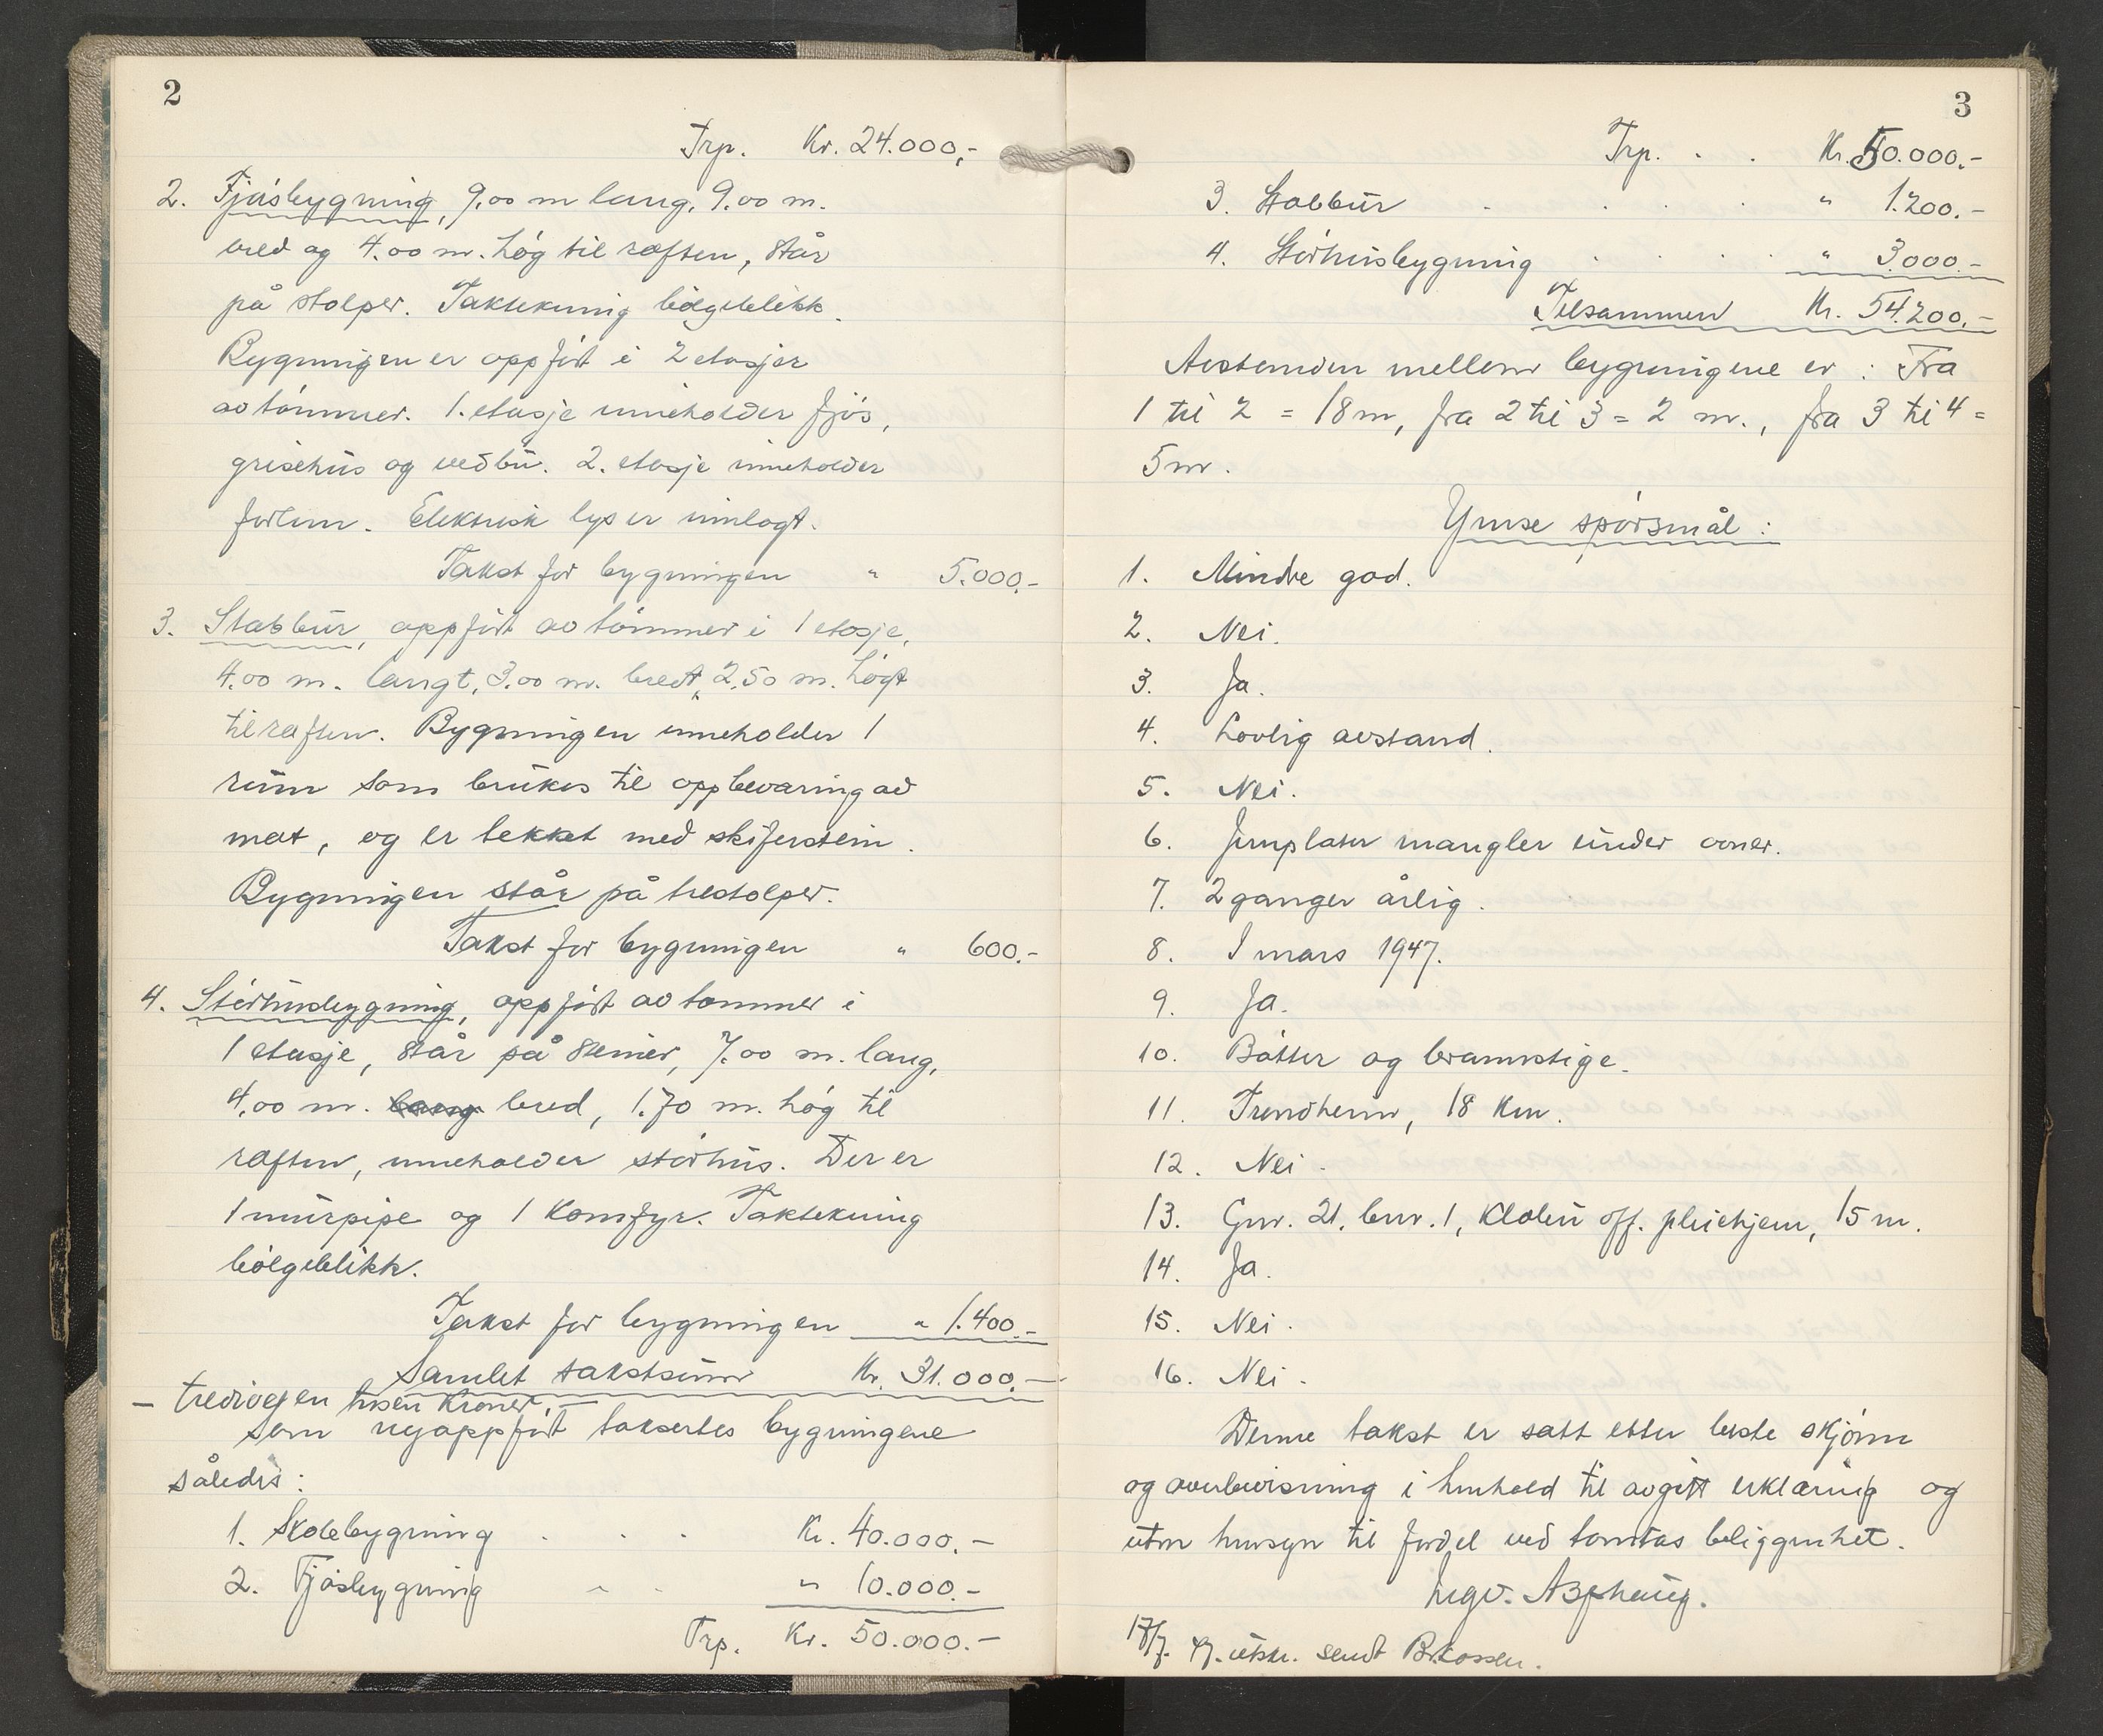 2
Trp. Kr. 24.000,-
2. Fjósbygning, 9.00 m lang, 9.00 m.
bred og 4.00 m. hóg til raften, står
på stolper. Taktekning bólgeblikk.
Bygningen er oppfórt i 2 etasjer
av tómmer. 1. etasje inneholder fjós,
grisehus og vedbu. 2. etasje inneholder
forlem. Elektrisk lys er innlagt.
Takst for bygningen " 5.000,-
3. Stabbur, oppfórt av tómmer i 1 etasje,
4.00 m. langt, 3.00 m. bredt, 2.50 m. hógt
til raften. Bygningen inneholder 1
rum som brukes til oppbevaring av
mat, og er tekket med skiferstein.
Bygningen står på trestolper.
Takst for bygningen " 600.-
4. Stórhusbygning, oppfórt av tommer i
1 etasje, står på steiner, 7.00 m. lang,
4.00 m. lang bred, 1.70 m. hóg til
raften, inneholder stórhus. Der er
1 murpipe og 1 komfyr. Taktekning
bólgeblikk.
Takst for bygningen " 1.400.-
Samlet takstsum Kr. 31.000.-
- trediveen tusen Kroner. -
Som nyoppfórt takseres bygningene
således:
1. Skolebygning . . . Kr. 40.000.-
2. Fjósbygning . . " 10.000.-
Trp. Kr. 50.000.-
3
Trp. . . Kr. 50.000.-
3. Stabbur . . . . " 1.200.-
4. Stórhusbygning . . . . " 3.000.-
Tilsammen Kr. 54.200.-
Avstanden mellem bygningene er: Fra
1 til 2 = 18 m, fra 2 til 3 = 2 m., fra 3 til 4 =
5 m.
Ymse spórsmål:
1. Mindre god.
2. Nei.
3. Ja.
4. Lovlig avstand.
5. Nei.
6. Jernplater mangler under ovner.
7. 2 ganger årlig.
8. I mars 1947.
9. Ja.
10. Bótter og brannstige.
11. Trondheim, 18 Km.
12. Nei.
13. Gnr. 21, bnr. 1, Klæbu off. pleiehjem, 15 m.
14. Ja.
15. Nei.
16. Nei.
Denne takst er satt etter beste skjónn
og overbevisning i henhold til avgitt erklæring og
uten hensyn til fordel ved tomtas beliggenhet.
Ingv. Asphaug.
17/7. utskr. sendt Br.kassen.